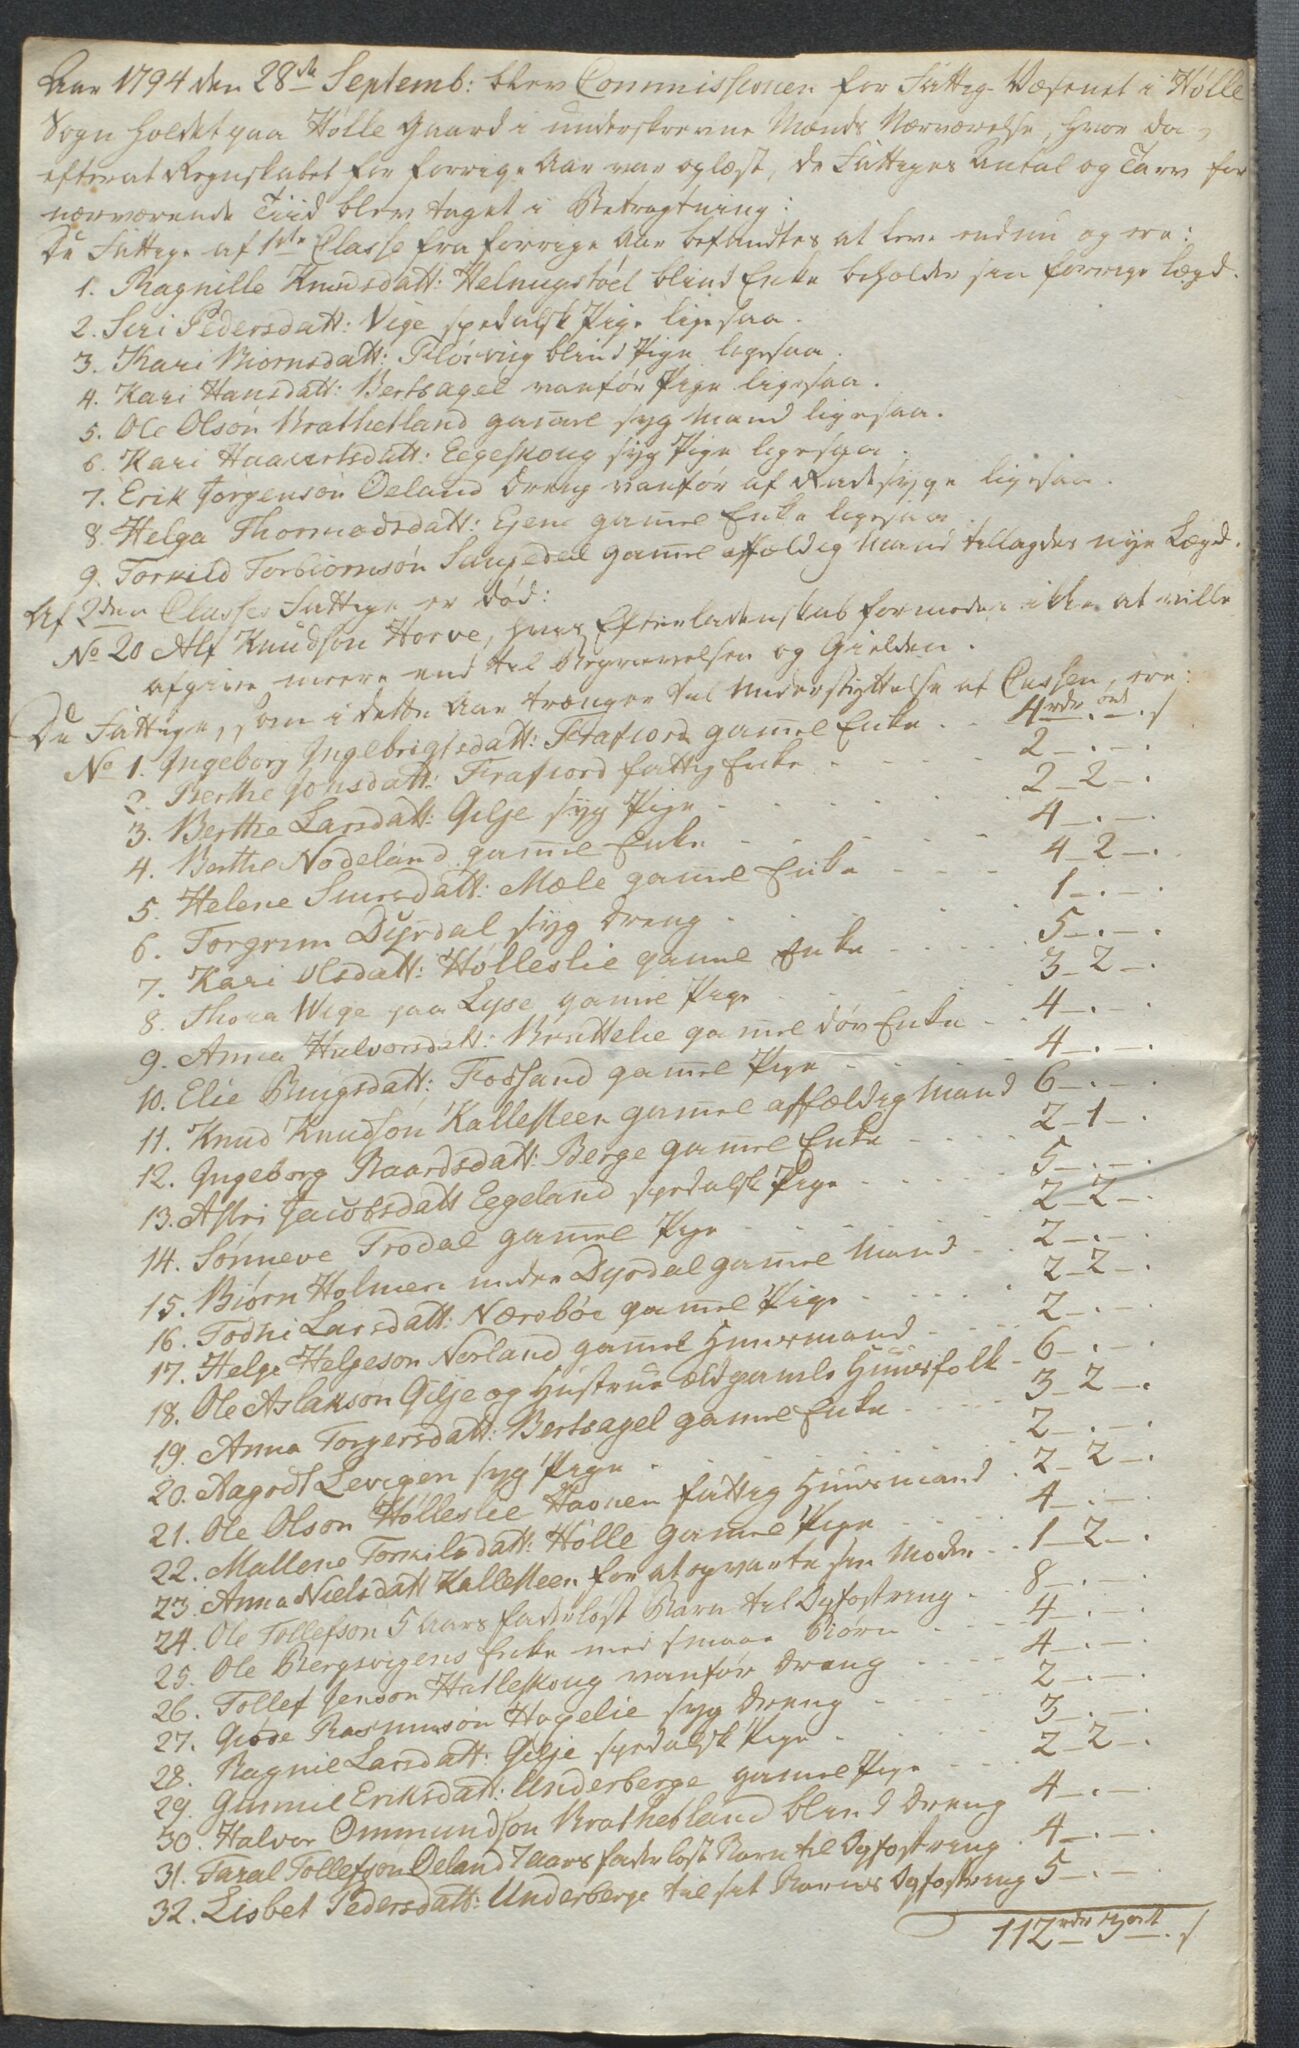 Aar 1794 den 28de Septemb: blev Commissionen for Fattig-Væsenet i Hølle
Sogn holdet paa Hølle Gaard i underskrevne Mænds Nærværelse, hvor da,
efterat Regnskabet for forrige Aar var oplæst, de Fattiges Antal og Tarv for
nærværende Tiid blev taget i Betragtning:
De Fattige af 1ste Classe fra forrige Aar befandtes at leve endnu og ere:
1. Ragnille Knudsdatt: Helmigstøel blind Enke beholder sin forrige Lægd.
2. Siri Pedersdatt: Vige spedalsk Pige ligesaa.
3. Kari Biørnsdatt: Flørvig blind Pige ligesaa.
4. Kari Hansdatt: Bertsagel vanfør Pige ligesaa.
5. Ole Olsøn Brathetland gam̅el syg Mand ligesaa.
6. Kari Haavertsdatt: Eegeskoug syg Pige ligesaa.
7. Erik Jørgensøn Oeland Dreng vanfør af Radesyge ligesaa.
8. Helga Thormodsdatt: Ejene gam̅el Enke ligesaa
9. Torkild Torbiørnsøn gam̅el affældig Mand tillagdes nye Lægd.
Af 2den Classes Fattige er død:
No 20 Alf Knudsøn Horve, hvis Efterladenskab formodes ikke at ville
afgive meere end til Begravelsen og Gielden.
De Fattige, som i dette Aar trænger til Understyttelse af Cassen, ere:
No 1. Ingeborg Ingebrigtsdatt: Frafiord gam̅el Enke - - 4 rdr. ort - . s
2. Berthe Jonsdatt: Frafiord fattig Enke - - - - 2 - . - .
3. Berthe Larsdatt: Gilje syg Pige - - - - 2 - 2 - .
4. Berthe Nødeland gam̅el Enke - - - - 4 - . - .
5. Helene Simersdatt: Mæle gam̅el Enke - - - - 4 - 2 - .
6. Torgrim Dyrdal syg Dreng - - - - 1 - . - .
7. Kari Olsdatt: Hølleslie gam̅el Enke - - - - 5 - . - .
8. Thora Wige paa Lyse gam̅el Pige - - - - 3 - 2 - .
9. Anna Halvorsdatt: Brattelie gam̅el døv Enke - - 4 - . - .
10. Elie Bingsdatt: Fossand gam̅el Pige - - - 4 - . - .
11. Knud Knudsøn Kallesteen gam̅el affældig Mand 6 - . - .
12. Ingeborg Baardsdatt: Berge gam̅el Enke - - - - 2 - 1 - .
13. Astri Jacobsdatt Eegeland spedalsk Pige - - - - 5 - . - .
14. Sønneve Frodal gam̅el Pige - - - - 2 - 2 - .
15. Biørn Holmen under Dyrdal gam̅el Mand - - 2 - . - .
16. Todni Larsdatt: Nærebøe gam̅el Pige - - - - 2 - 2 - .
17. Helge Helgesøn Norland gam̅el Huusmand - - - - 2 - . - .
18. Ole Aslaksøn Gilje og Hustrue ældgamle Huusfolk - 6 - . - .
19. Anna Torgersdatt: Bertsagel gam̅el Enke - - - - 3 - 2 - .
20. Aagodt Levigen syg Pige - - - - 2 - . - .
21. Ole Olson Hølleslie Haonen fattig Huusmand - 2 - 2 - .
22. Mallene Torkilsdatt: Hølle gam̅el Pige - - - - 4 - . - .
23. Anna Nielsdatt Kallesteen for at opvarte sin Moder - - 1 - 2 - .
24. Ole Tollefsøn 5 Aars faderløst Barn til Opfostring - - 8 - . - .
25. Ole Bergsvigens Enke med smaae Børn - - - - 4 - . - .
26. Tollef Jensøn Hatleskoug vanfør Dreng - - - - 4 - . - .
27. Giøde Rasmusøn Hagelie syg Dreng - - - - 2 - . - .
28. Ragnil Larsdatt: Gilje spedalsk Pige - - - - 3 - . - .
29. Gunnil Eriksdatt: Underberge gam̅el Pige - - - 2 - 2 - .
30. Halvor Ommundsøn Brathetland blind Dreng 4 - . - .
31. Taral Tollefsøn Oeland 7 aars faderløst Barn til Opfostring . 4 - . - .
32. Lisbet Pedersdatt: Underberge til sit Barns Opfostring 5 - . - .
112 rdr 3 ort . s